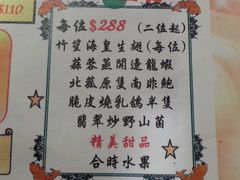 $110
每位$288 (二位起)
竹笙海皇生翅(每位)
蒜蓉蒸開邊龍蝦
北菰原隻南非鮑
脆皮燒乳鴿半隻
翡翠炒野山菌
精美甜品
合時水果